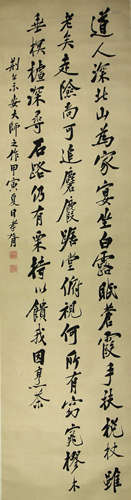 道人深北山為家宴坐白露眠蒼霞手扶棁杖雖
老矣走險尚可追麏麚踞堂俯視何所有窈窕樛木
垂樝深尋石路仍有栗持以饋我因烹茶
荆公示安大師之作甲寅夏日孝胥